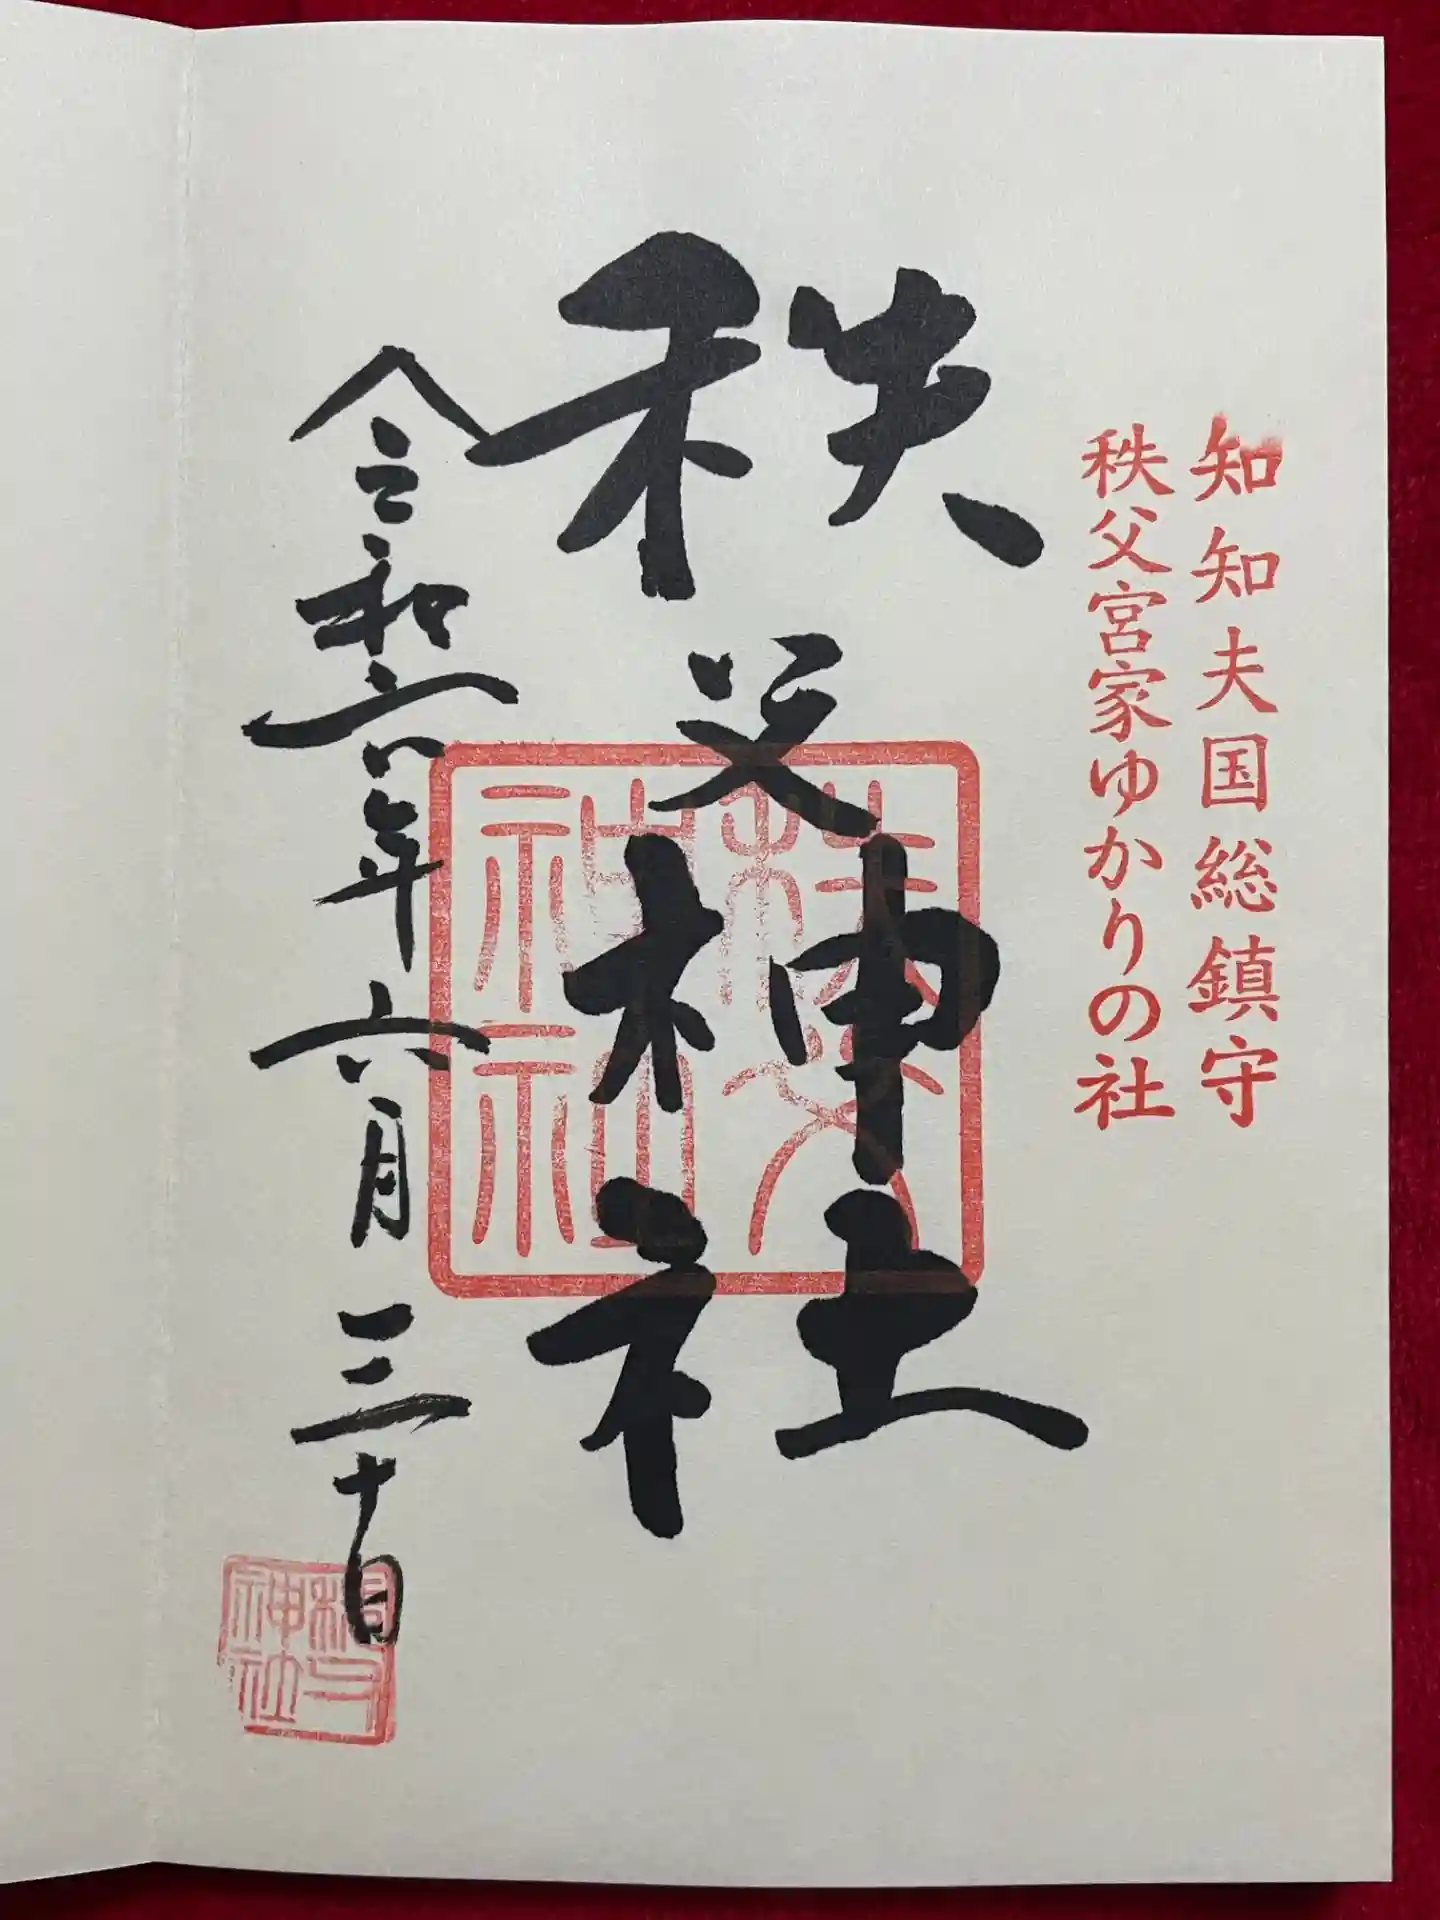 知知夫国総鎮守
秩父宮家ゆかりの社
秩父神社
秩父
神社
令和六年六月三十日
神社